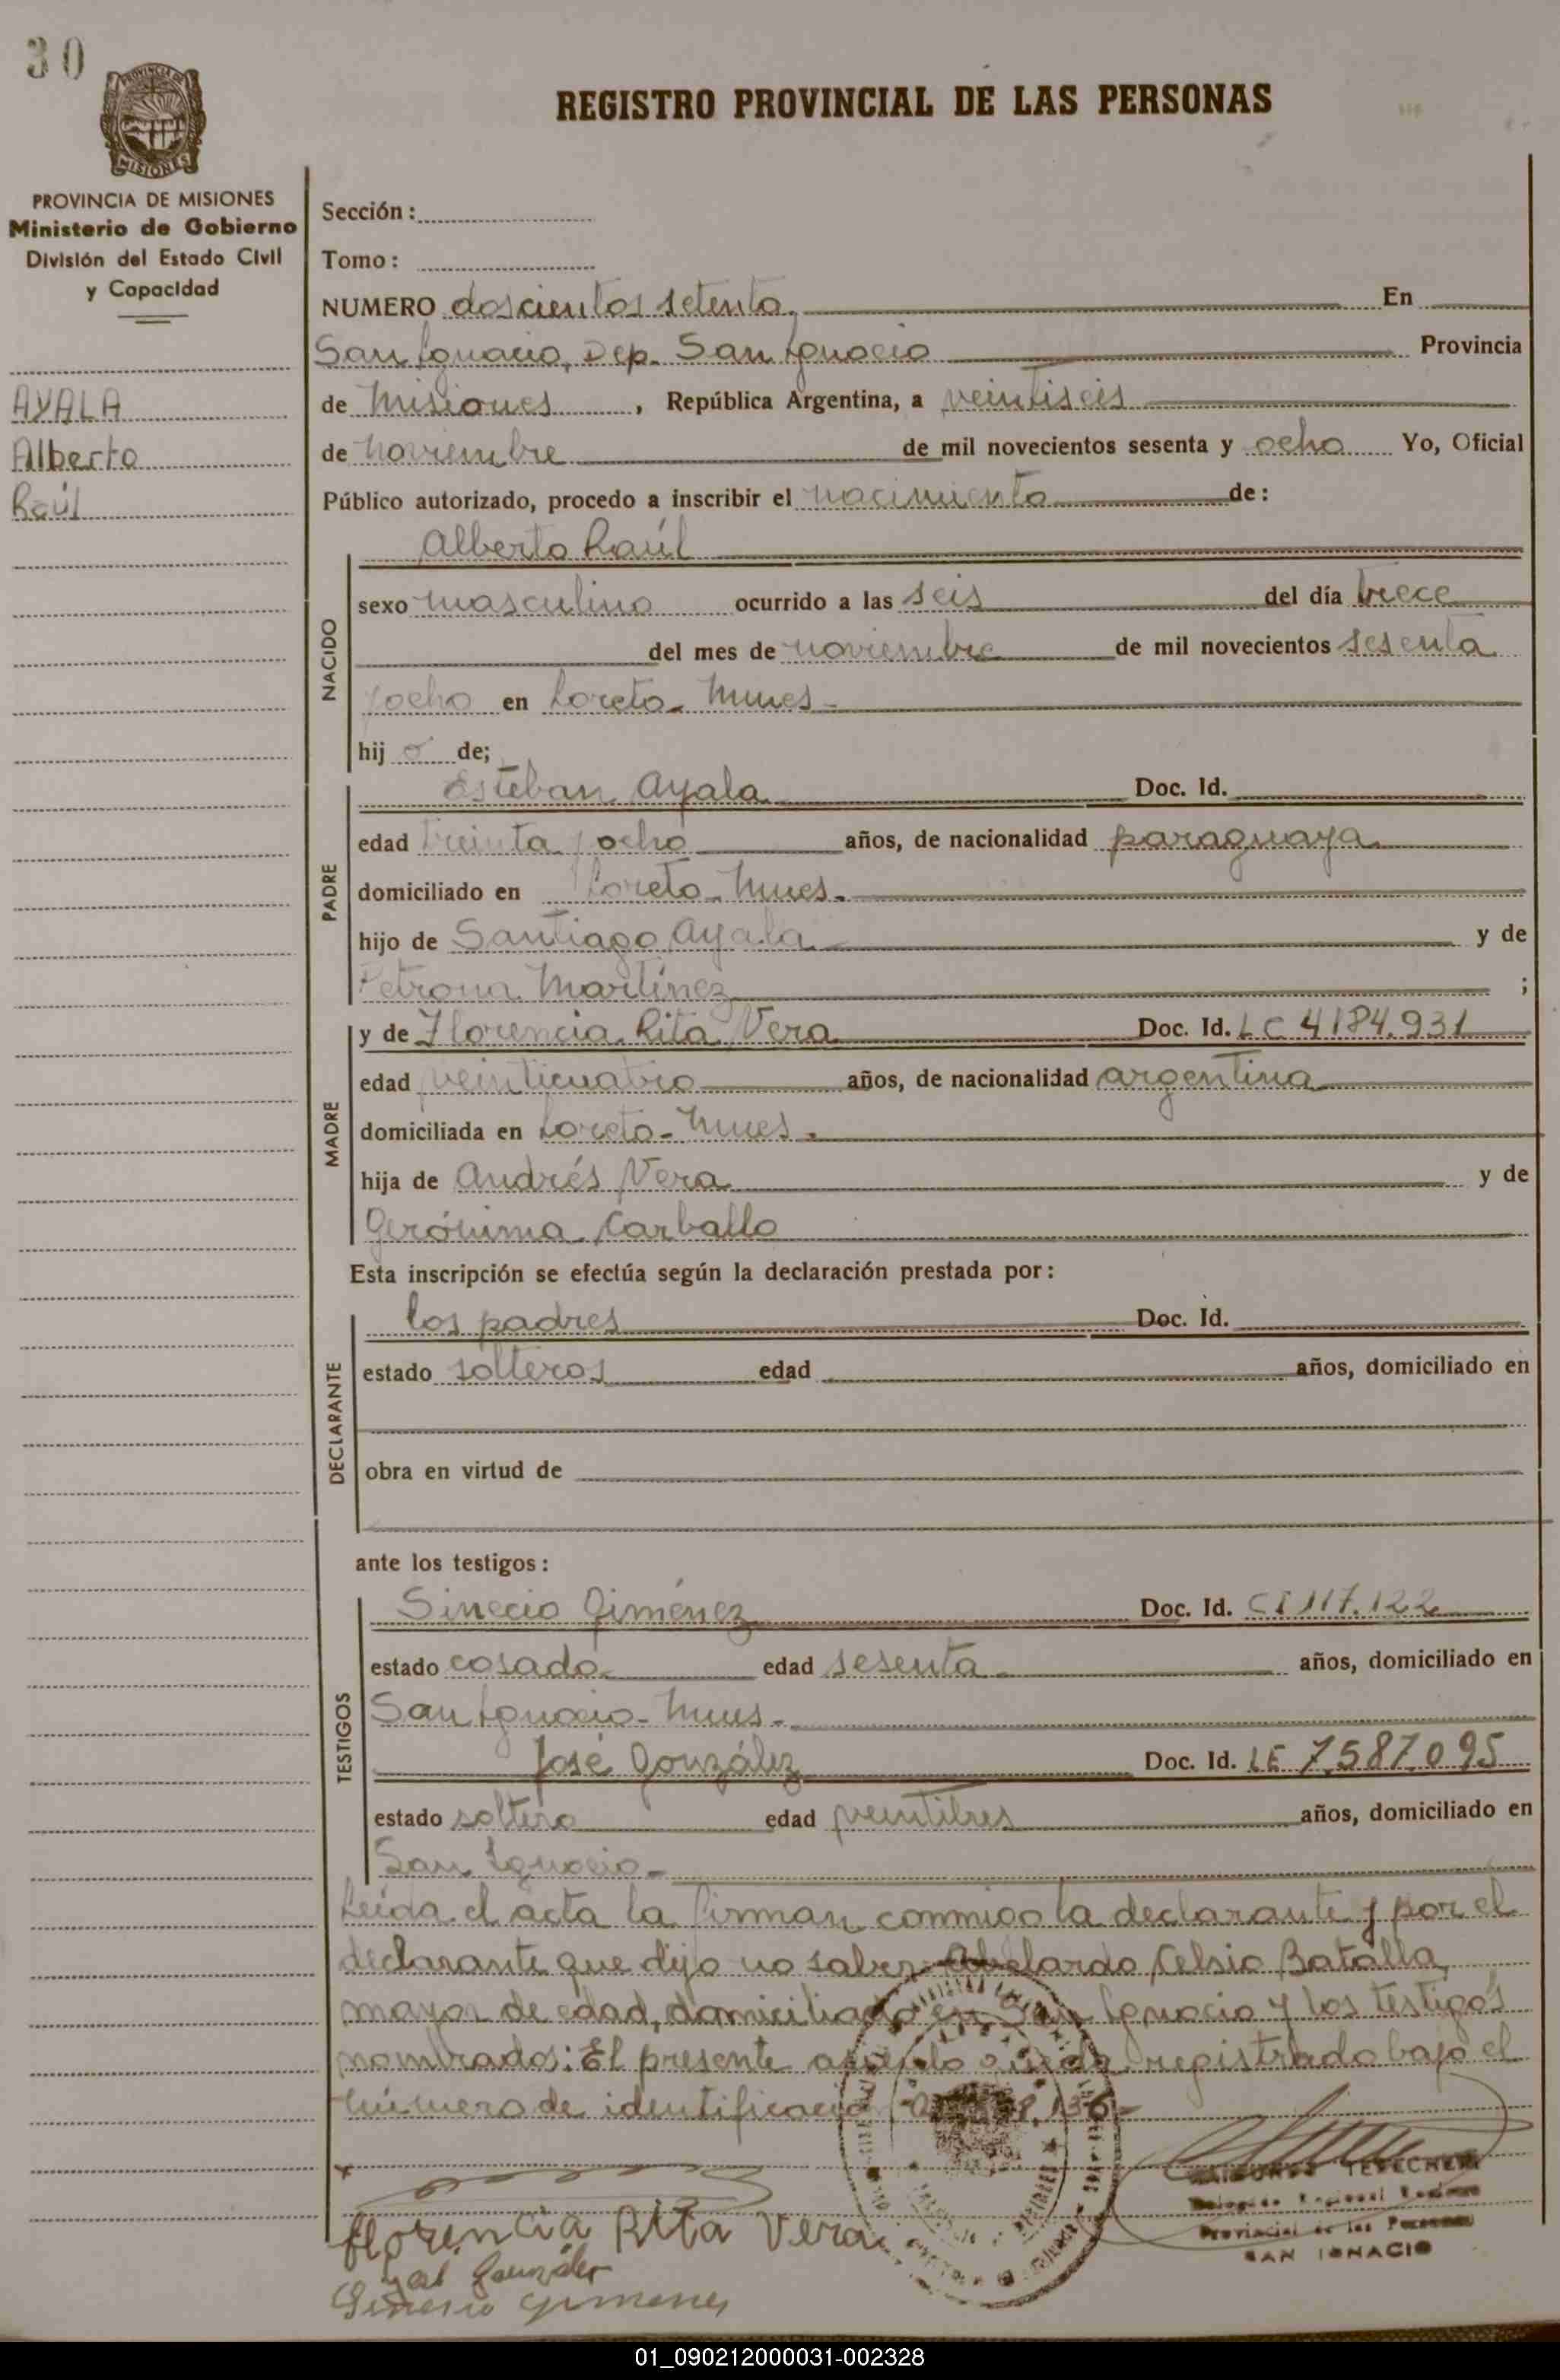 30
PROVINCIA DE
MISIONES
REGISTRO PROVINCIAL DE LAS PERSONAS
PROVINCIA DE MISIONES
Ministerio de Gobierno
División del Estado Civil
y Capacidad
AYALA
Alberto
Raúl
Sección:
Tomo:
NUMERO doscientos setenta. En
San Ignacio, Dep. San Ignacio Provincia
de Misiones, República Argentina, a veintiseis
de noviembre de mil novecientos sesenta y ocho Yo, Oficial
Público autorizado, procedo a inscribir el nacimiento de:
NACIDO
Alberto Raúl
sexo masculino ocurrido a las seis del día trece
del mes de noviembre de mil novecientos sesenta
y ocho en Loreto. Mnes-
hij o de;
PADRE
Esteban Ayala Doc. Id.
edad treinta y ocho años, de nacionalidad paraguaya
domiciliado en Loreto. Mnes.
hijo de Santiago Ayala y de
Petrona Martínez ;
MADRE
y de Florencia Rita Vera Doc. Id. LC 4184.931
edad veinticuatro años, de nacionalidad argentina
domiciliada en Loreto- Mnes.
hija de Andrés Vera y de
Gerónima Carballo
Esta inscripción se efectúa según la declaración prestada por:
DECLARANTE
los padres Doc. Id.
estado solteros edad años, domiciliado en
obra en virtud de
ante los testigos:
TESTIGOS
Sinecio Giménez Doc. Id. CI 117.122
estado casado edad sesenta años, domiciliado en
San Ignacio- Mnes-
José González Doc. Id. LE 7.587.095
estado soltero edad veintitres años, domiciliado en
San Ignacio-
Leída el acta la firman conmigo la declarante y por el
declarante que dijo no saber Abelardo Celsio Batalla,
mayor de edad, domiciliado en San Ignacio y los testigos
nombrados: El presente asiento queda registrado bajo el
número de identificación 136-
Florencia Rita Vera
José González
Sinecio Gimenez
TEPECHEM
Delegado Regional Registro
Provincial de las Personas
SAN IGNACIO
01_090212000031-002328